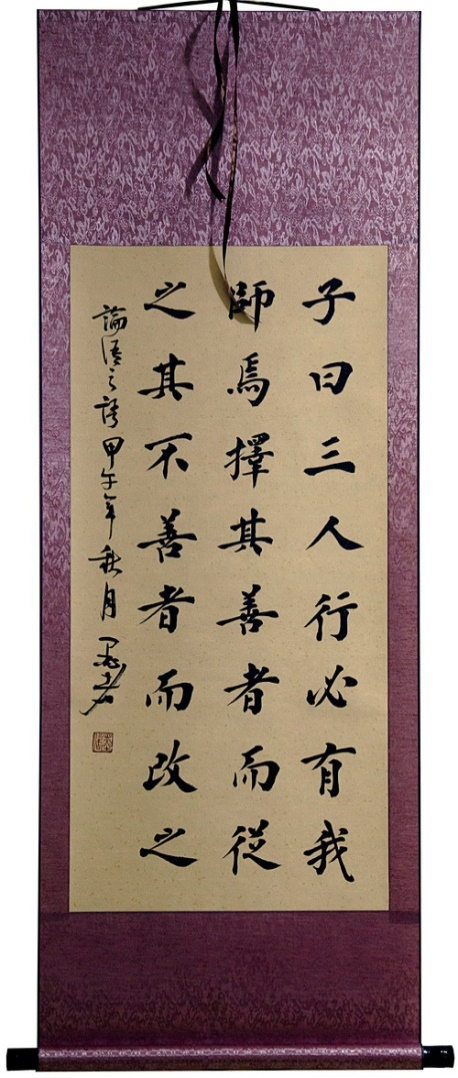 子曰三人行必有我
師焉擇其善者而從
之其不善者而改之
論語之語甲午年秋月